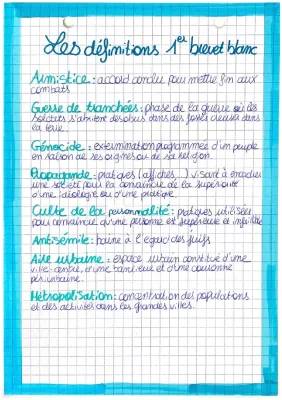 Les définitions 1er brevet blanc
Armistice : accord conclu pour mettre fin aux
combats.
Guerre de tranchées : phase de la guerre où les
soldats s'abritent dans des fossés creusés dans
la terre.
Génocide : extermination programmée d'un peuple
en raison de ses origines ou de sa religion.
Propagande : pratiques (affiches...) visant à
une société pour la convaincre de la supériorité
d'une idéologie ou d'une pratique.
Culte de la personnalité : pratiques utilisées
pour convaincre qu'une personne est supérieure et infaillible
Antisémite : haine à l'égard des juifs
Aire urbaine : espace urbain constitué d'une
ville-centre, d'une banlieue et d'une couronne
périurbaine.
Métropolisation : concentration des populations
et des activités dans les grandes villes.